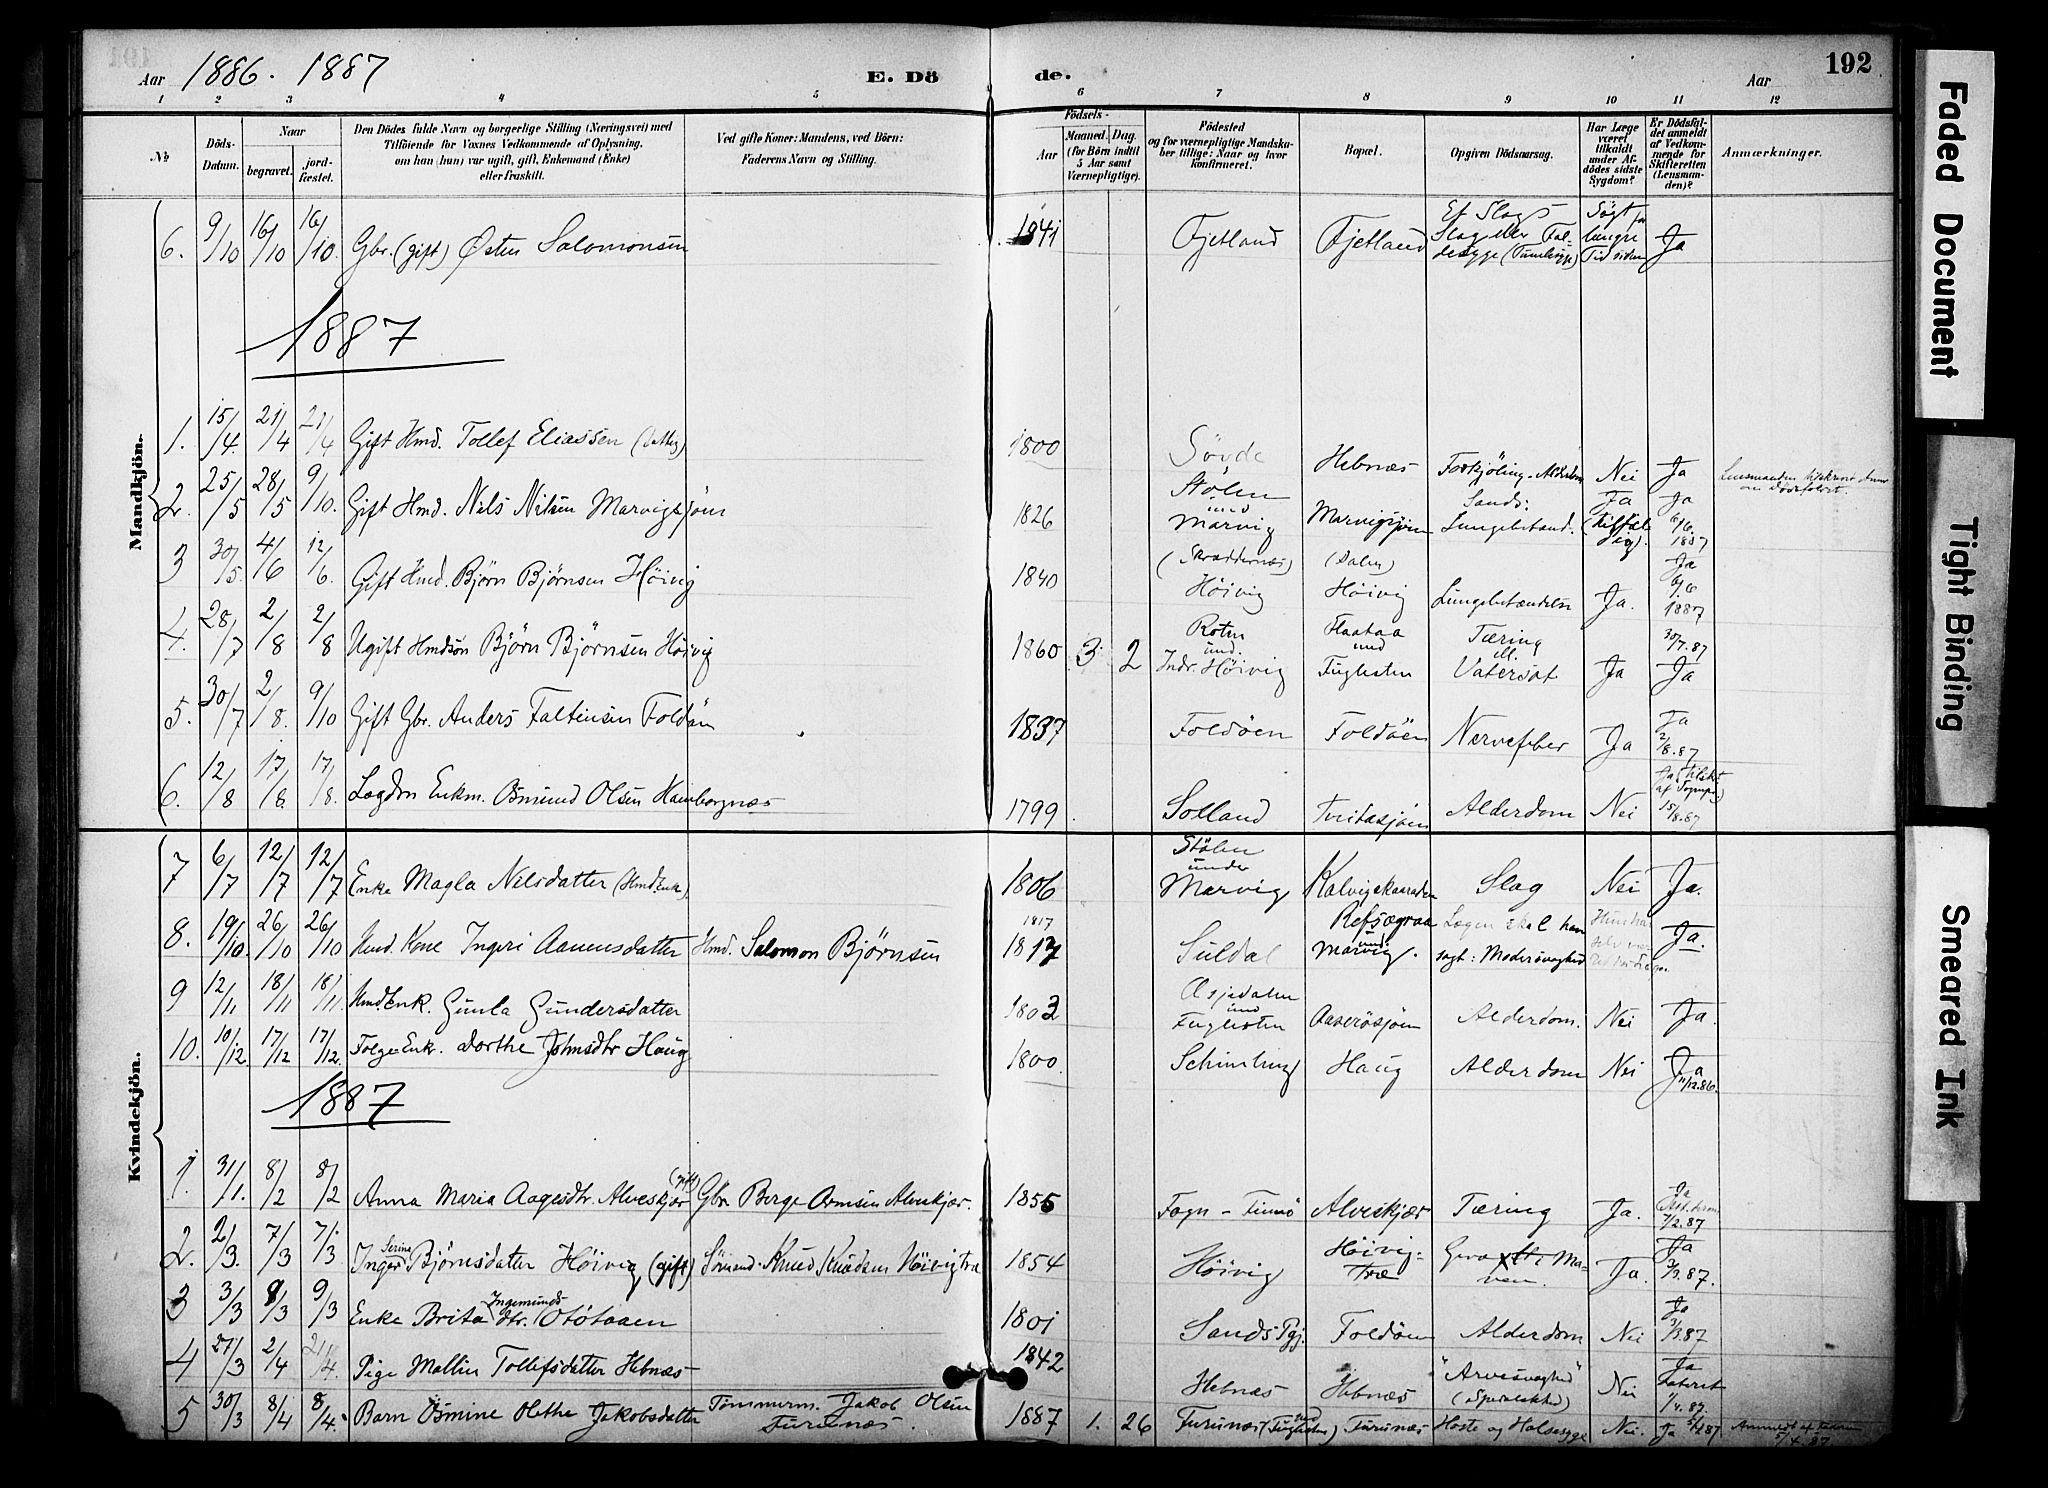 Aar 1886. 1887 E. Dö de. Aar 192
1 2 3 4 5 6 7 8 9 10 11 12
№
Döds-Datum.
Naar
begravet.
jord-fæstet.
Den Dödes fulde Navn og borgerlige Stilling (Næringsvei) med
Tilföiende for Voxnes Vedkommende af Oplysning,
om han (hun) var ugift, gift, Enkemand (Enke)
eller fraskilt.
Ved gifte Koner: Mandens, ved Börn:
Faderens Navn og Stilling.
Födsels-
Aar
Maaned. Dag.
(for Börn indtil
5 Aar samt
Værnepligtige).
Födested
og for værnepligtige Mandska-
ber tillige: Naar og hvor
konfirmeret.
Bopæl.
Opgiven Dödsaarsag.
Har Læge
været
tilkaldt
under Af-
dödes sidste
Sygdom?
Er Dödsfal-
det anmeldt
af Vedkom-
mende for
Skifteretten
(Lensman-
den)?
Anmærkninger.
Mandkjön.
6. 9/10 16/10 16/10. Gbr. (gift) Østen Salomonsen 1841 Fjetland Fjetland Et Slags Slag eller Fal- Søgt for længre Tid siden Ja
1887
1. 15/4. 21/4 21/4 Gift Hmd. Tollef Eliassen 1800 Søvde Hebnæs Forkjöling. Alderdom Nei Ja
2. 25/5 28/5 9/10. Gift Hmd. Nels Nilsen Marvigsjöen 1826 Stölen und Marvig Marvigsjöen Sands: Lungebetænd. Ja Ja 6/6 1887
3 30/5. 4/6 12/6. Gift Hmd. Björn Björnsen Höivig 1840 (Skraddernæs) Höivig (Dalen) Höivig Lungebetændelse Ja. Ja 6/6 1887
4. 28/7 2/8 2/8 Ugift Hmdsön Björn Björnsen Höivig 1860 3 2 Roten und. Indr. Höivig Flaataa und Fuglesten Tæring ell. Vatersot Ja 30/7.87 Ja
5. 30/7 2/8. 9/10 Gift Gbr. Anders Falteinsen Foldöen 1837 Foldöen Foldöen Nervefeber Ja Ja 2/8.87
6. 12/8 17/8. 17/8. Lægdm Enkm. Osmund Olsen Hamborgnæs 1799 Solland Tveitasjöen Alderdom Nei Ja 15/8.87
Kvindekjön.
7 6/7 12/7 12/7 Enke Magla Nelsdatter (Hmd Enk). 1806 Stölen under Marvig Kalvigskaaraden Slag Nei Ja.
8. 19/10. 26/10 26/10 Hmd. Kone Ingeri Aanensdatter Hmd. Salomon Björnsen 1817 1817 Suldal Refsøgraa und Marvig. Lægen skal have sagt: Modersvaghed Ja.
9 12/11 18/11 18/11. Hmd Enk. Gunla Gundersdatter 1803 Osjedalen und Fuglesten Aaserössjöen Alderdom. Nei Ja.
10. 10/12 17/12 17/12. Folge-Enk. Dorthe Johnsdtr Haug 1800 Haug Alderdom Nei Ja 11/12.86.
1887
1. 31/1. 8/2 8/2 Anna Maria Aagesdtr. Alveskjær (gift) Gbr. Berge Ormsen Alveskjær. 1855 Fogn - Finnö Alveskjær Tæring Ja. Ja 7/2.87
2. 2/3. 7/3 7/3 Inger Serine Björnsdatter Höivig (gift) Sömand. Knud Knudsen Höivigtræ 1854 Höivig Höivig-træ Ma-ven. Ja. Ja 3/3.87.
3 3/3 8/3 9/3 Enke Brita Ingemunds-dtr. Otötaaen 1801 Sands Pgj. Foldöen Alderdom Nei Ja 3/3.87
4 27/3 2/4 2/4. Pige Mallin Tollefsdatter Hebnæs 1842 Hebnæs Hebnæs "Arvesvaghed" (Spedalskhed) Nei Ja 1/4.87.
5 30/3 8/4 8/4. Barn Osmine Olethe Jakobsdatter Tömmerm. Jakob Olsen Furunæs. 1887 1. 26 Furunæs (und Fuglesten) Furunæs Hoste og Halssyge Nei. Ja 5/4 87 Anmeldt af Faderen 5/4.87
Faded Document
Tight Binding
Smeared Ink